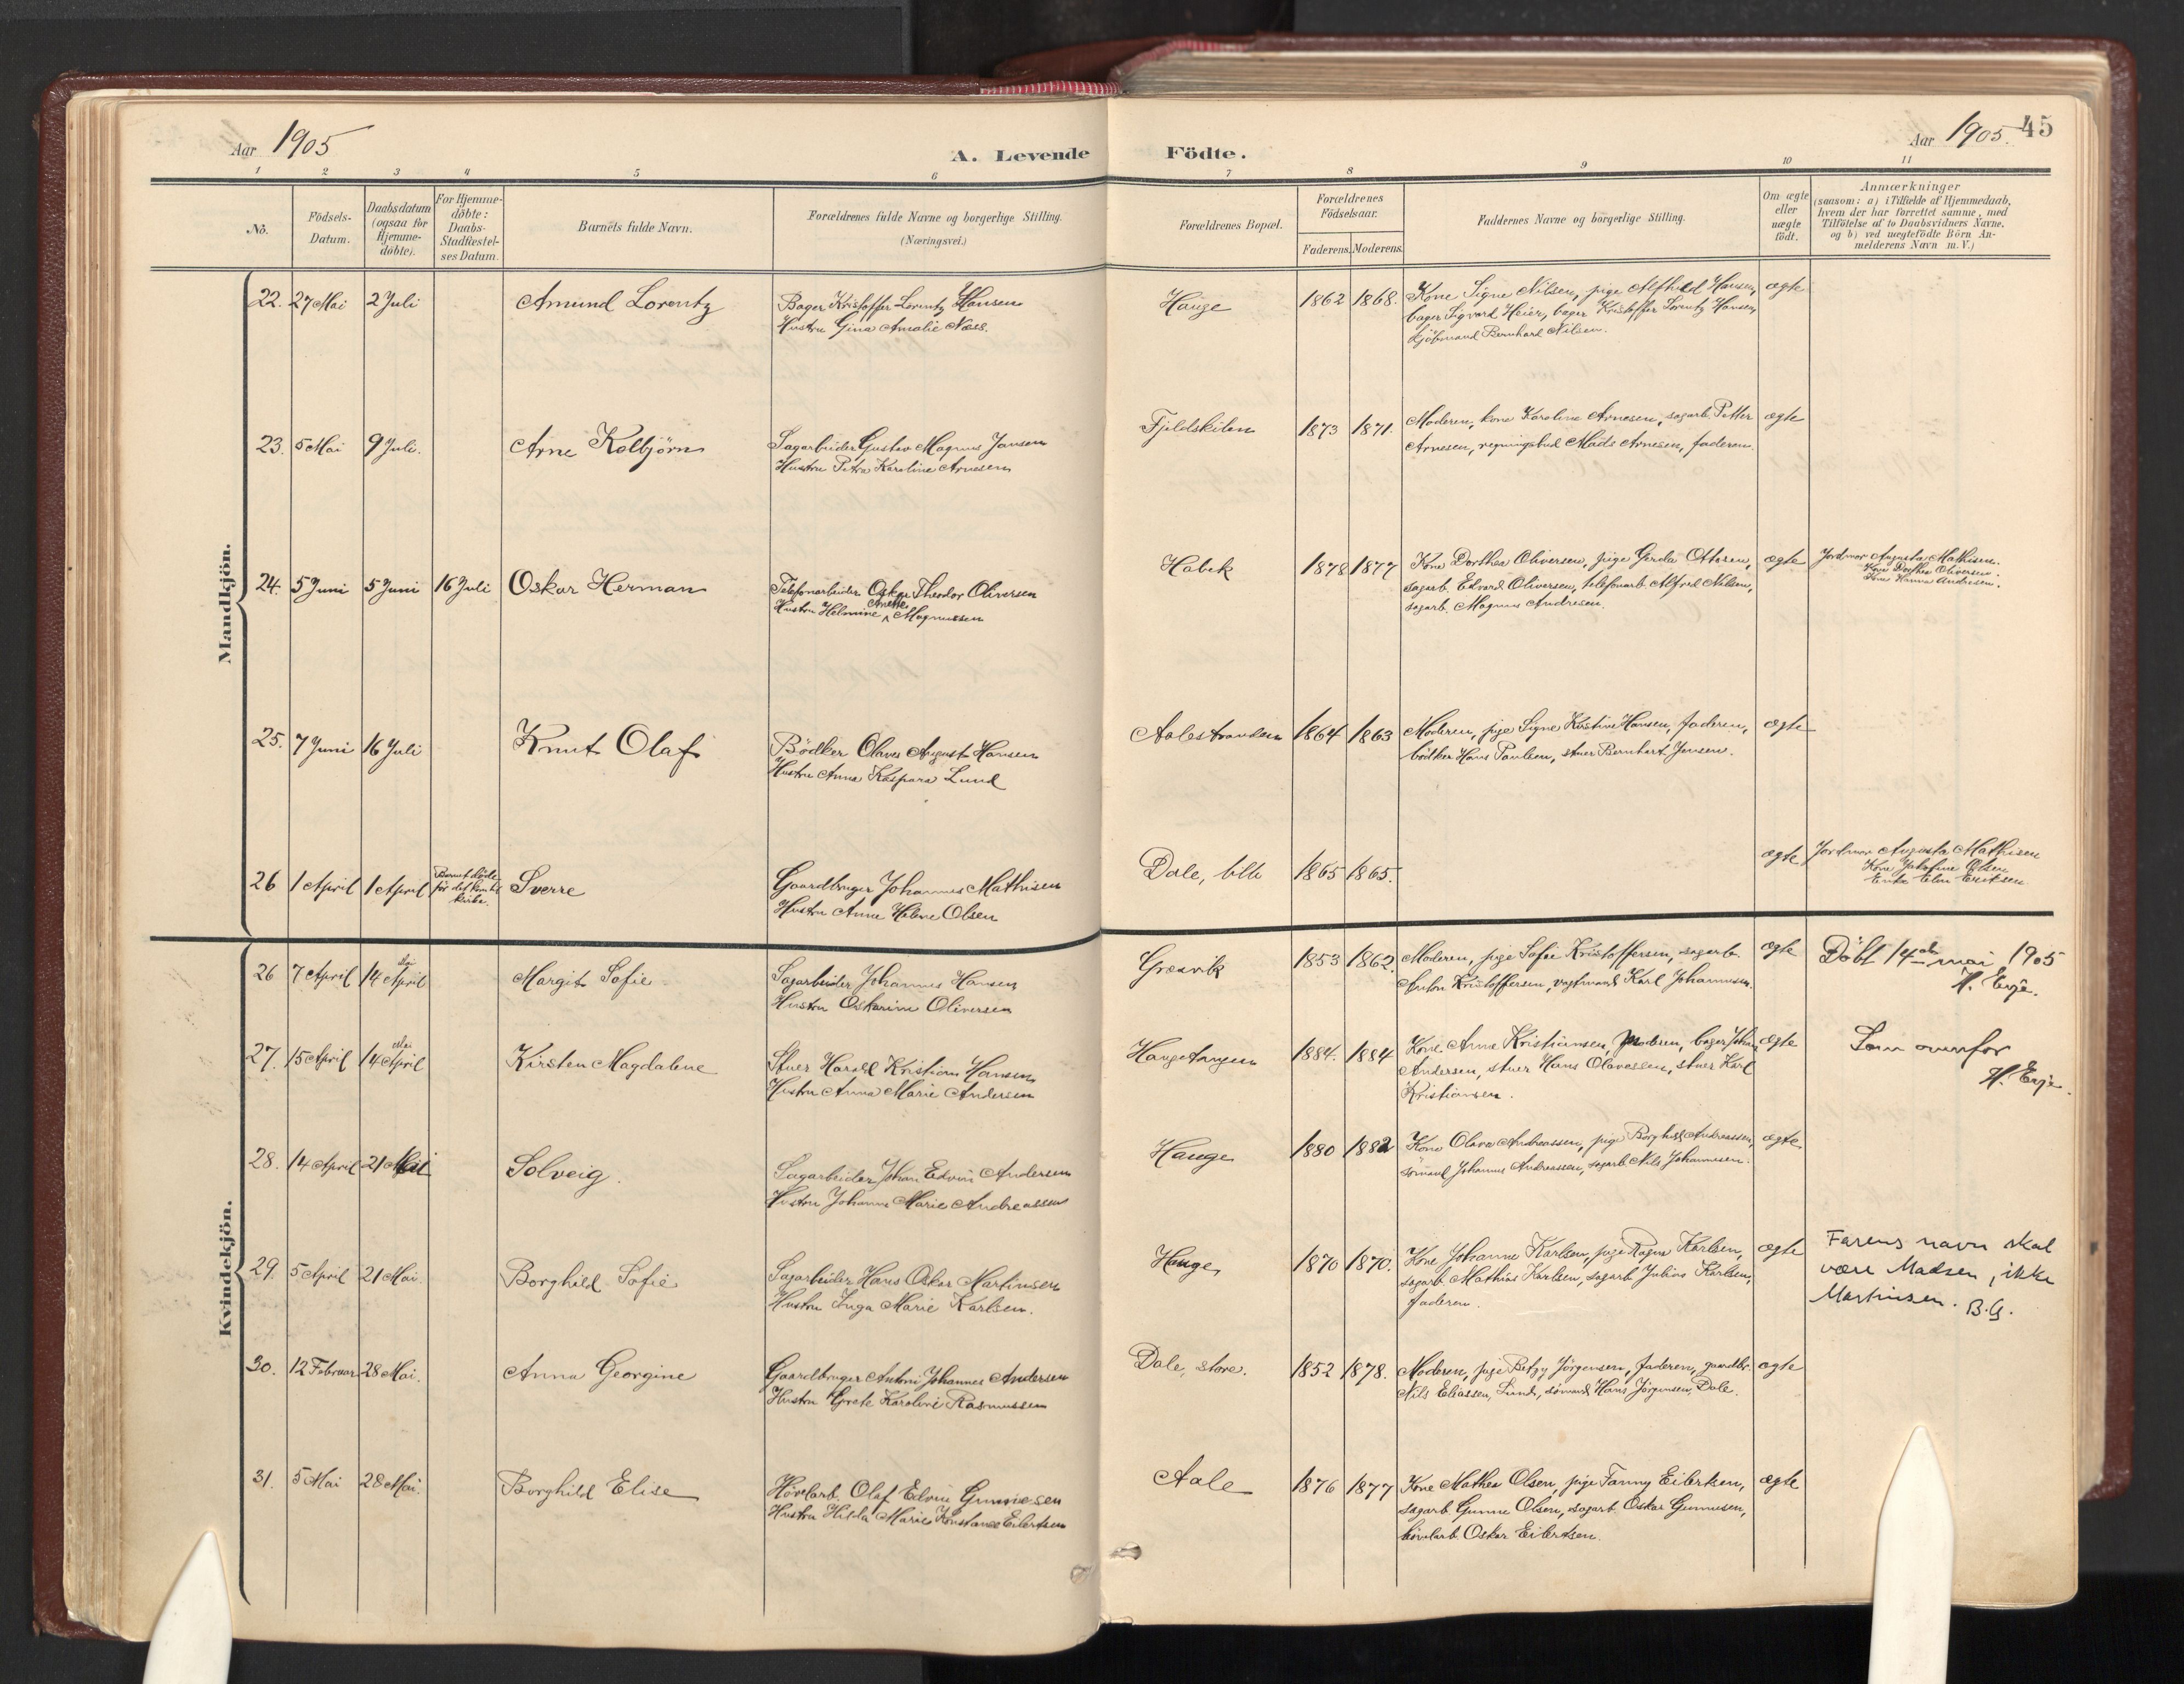 Aar 1905
A. Levende
Födte.
Aar 1905. 45
1 2 3 4 5 6 7 8 9 10 11
No.
Födsels-
Datum.
Daabsdatum
(ogsaa for
Hjemme-
döbte).
For Hjemme-
döbte:
Daabs-
Stadfæstel-
ses Datum.
Barnets fulde Navn.
Forældrenes fulde Navne og borgerlige Stilling.
(Næringsvei.)
Forældrenes Bopæl.
Forældrenes
Födselsaar.
Faderens. Moderens.
Faddernes Navne og borgerlige Stilling.
Om ægte
eller
uægte
födt.
Anmærkninger
(saasom: a) i Tilfælde af Hjemmedaab,
hvem der har forrettet samme, med
Tilföielse af to Daabsvidners Navne,
og b) ved uægtefödte Börn An-
melderens Navn m. V.)
Mandkjön.
22. 27 Mai 2 Juli
Amund Lorentz
Bager Kristoffer Lorentz Hansen
Hustru Gina Amalie Næss.
Hauge
1862 1868.
Kone Signe Nilsen, pige Alfhild Hansen,
bager Sigvard Heier, bager Kristoffer Lorentz Hansen,
kjöbmand Bernhard Nilsen.
ægte
23. 5 Mai 9 Juli.
Arne Kolbjörn
Sagarbeider Gustav Magnus Jansen
Hustru Petra Karoline Arnesen
Fjeldskilen
1873 1871.
Moderen, kone Karoline Arnesen, sagarb. Petter
Arnesen, regningsbud Mads Arnesen, faderen.
ægte
24. 5 Juni 5 Juni 16 Juli
Oskar Herman
Telefonarbeider Oskar Theodor Oliversen
Anette
Hustru Helmine ^ Magnussen
Habek
1878 1877
Kone Dorthea Oliversen, pige Gerda Ottosen,
sagarb. Edvard Oliversen, telefonarb. Alfred Nilsen,
sagarb. Magnus Andresen.
ægte
Jordmor Augusta Mathisen.
Kone Dorthea Oliversen.
Kone Andresen.
25. 7 Juni 16 Juli
Knut Olaf
Bödker Olaves August Hansen
Hustru Anna Kaspara Lund
Aalestranden
1864 1863
Moderen, pige Signe Kristine Hansen, faderen,
bödker Hans Paulsen, stuer Bernhart Jensen.
ægte
26 1 April 1 April
Barnet döde
för det kom til
kirke.
Sverre
Gaardbruger Johannes Mathisen
Hustru Anne Helene Olsen
Dale, lille
1865 1865.
ægte
Jordmor Augusta Mathisen
Kone Josefine Olsen
Enke Elen Eriksen
Kvindekjön.
26 7 April 14 April
Margit Sofie
Sagarbeider Johannes Hansen
Hustru Oskarine Oliversen
Gresvik
1853 1862.
Moderen, pige Sofie Kristoffersen, sagarb.
Anton Kristoffersen, vagtmand Karl Johannesen.
ægte
Döbt 14de mai 1905
H. Erje.
Mai
27. 15 April 14 April
Kirsten Magdalene
Stuer Harald Kristian Hansen
Hustru Anna Marie Andersen
Haugetangen
1884. 1884
Kone Anne Kristiansen, Moderen, bager Johan
Andersen, stuer Hans Olavessen, stuer Karl
Kristiansen.
ægte
Som ovenfor
H. Erje.
28. 14 April 21 Mai
Solveig.
Sagarbeider Johan Edvin Andersen
Hustru Johanne Marie Andreassen
Hauge
1880 1882
Kone Olava Andreassen, pige Borghild Andreassen,
sömand Johannes Andreassen, sagarb. Nils Johannesen.
ægte
29. 5 April 21 Mai.
Borghild Sofie
Sagarbeider Hans Oskar Martinsen
Hustru Inga Marie Karlsen.
Hauge,
1870 1870.
Kone Johanne Karlsen, pige Ragna Karlsen,
sagarb. Mathias Karlsen, sagarb. Julius Karlsen,
faderen.
ægte
Farens navn skal
være Madsen, ikke
Martinsen. B.G.
30. 12 Februar 28 Mai.
Anna Georgine
Gaardbruger Anton Johannes Andersen
Hustru Grete Karoline Rasmussen
Dale, store.
1852 1878.
Moderen, pige Betzy Jörgensen, faderen, gaardbr.
Nils Eliassen, Lund, sömand Hans Jörgensen, Dale.
ægte
31. 5 Mai 28 Mai.
Borghild Elise
Hövlarb. Olaf Edvin Gunnesen
Hustru Hilda Marie Konstanse Eilertsen
Aale
1876 1877
Kone Mathea Olsen, pige Fanny Eilertsen,
sagarb. Gunne Olsen, sagarb. Oskar Gunnesen,
hövlarb. Oskar Eilertsen.
ægte